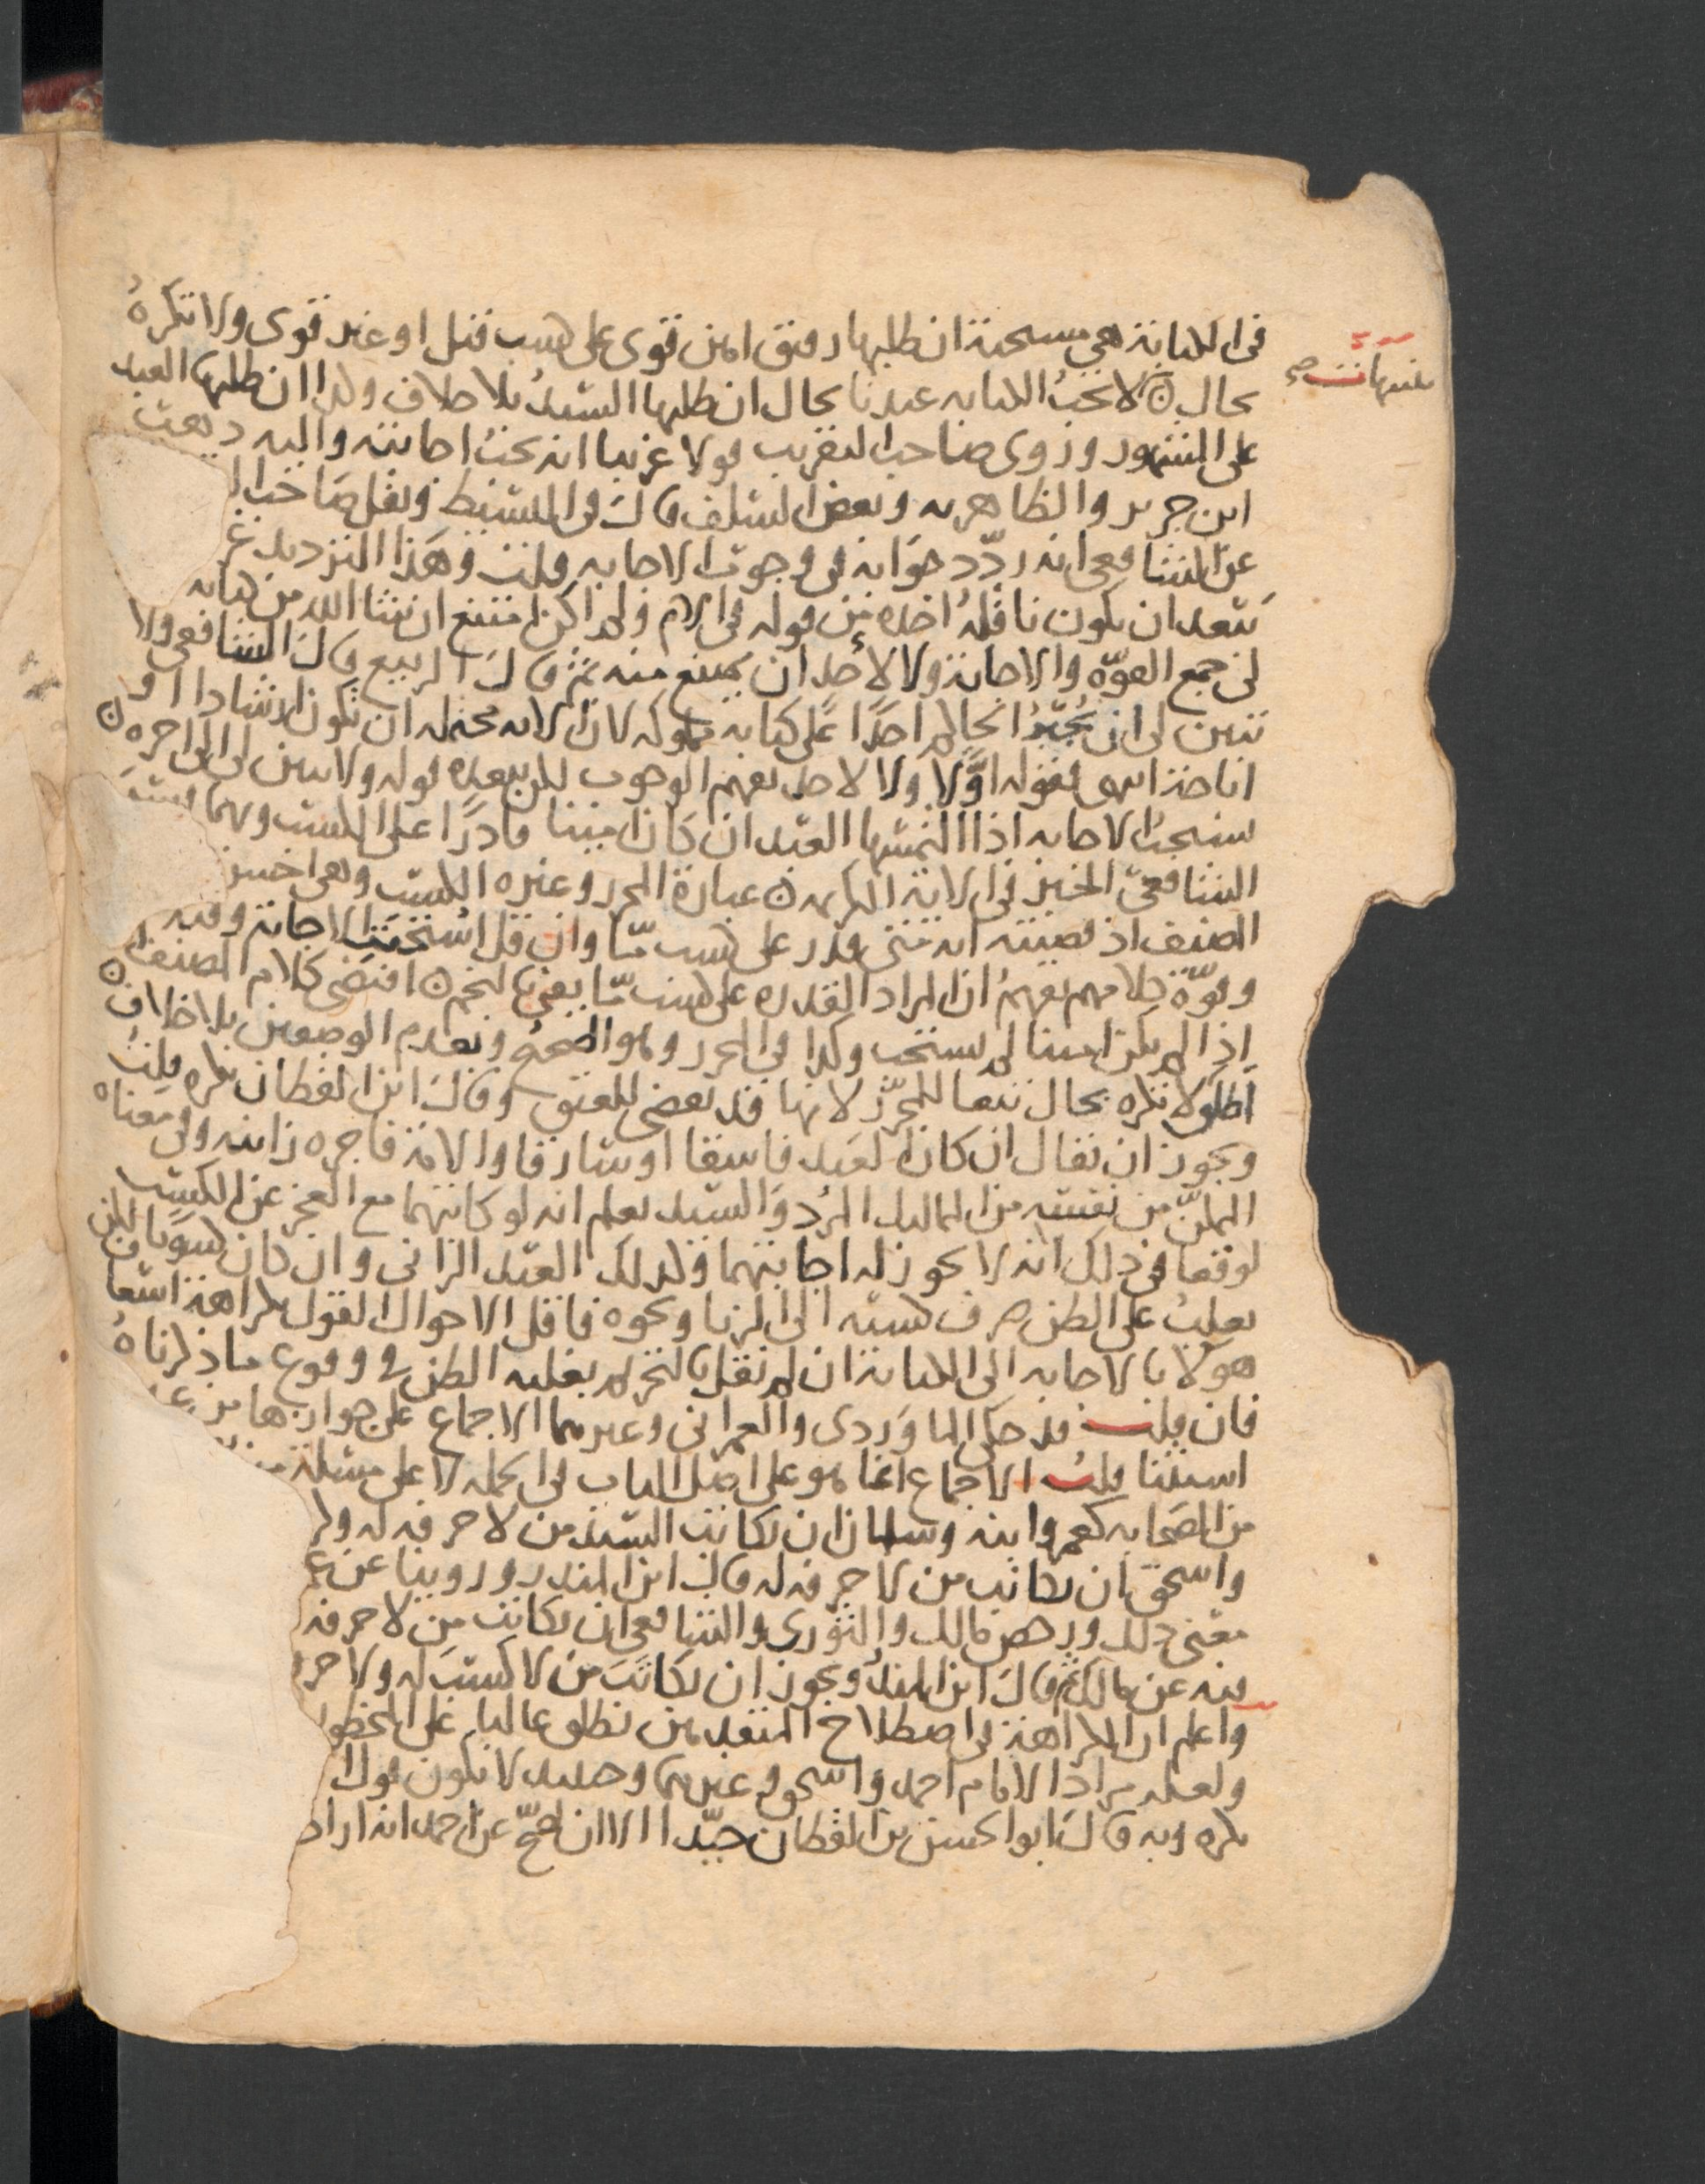 في الكتابة هي مستحبة ان طلبها رقيق امين قوي على كسب قيل او غير قوي ولا تكره
بحال ۞ لا تجب الكتابة عندنا بحال ان طلبها السيد بلا خلاف وكذا ان طلبها العبد
على المشهور وروى صاحب التقريب قولا غريبا انه تجب اجابته واليه ذهب
ابن جرير والظاهرية وبعض السلف قال في البسيط ونقل صاحب ا
عن الشافعي انه ردد جوابه في وجوب الاجابة قلت وهذا الترديد غر
يشعه ان يكون ناقله اخذه من قوله في الام ولم اكن امتنع ان شا الله من كتابة
لي جمع القوة والامانة ولا لاحد ان يمتنع منه ثم قال الربيع قال الشافعي ولا
يبين لي ان يجبر الحاكم احدا على كتابة مملوكه لان الاية محتملة ان تكون ارشادا او
اباحة انتهى فقوله اولا ولا لاحد يفهم الوجوب لكن يبعده قوله ولا يبين لي الى اخره ۞
ستحب الاجابة اذا التمسها العبد ان كان امينا قادرا على الكسب وبهما فسر
الشافعي الخير في الاية الكريمة ۞ عبارة المحرر وغيره الكسب وهي احسن
المصنف اذ قضيته انه متى قدر على كسب ما وان قل استحبت الاجابة وفيه
وقوة كلامهم يفهم ان المراد القدرة على كسب ما يفي بالنجم ۞ اقتضى كلام المصنف ۞
اذا لم يكن امينا لم يستحب وكذا في المحرر وهو الصحيح وبعدم الوصفين بلا خلاف
اطلق لا تكره بحال تبعا للمحرر لانها قد تفضي للعتق وقال ابن القطان تكره قلت
ويجوز ان يقال ان كان العبد فاسقا او سارقا والامة فاجرة زانية وفي معناه
الممكن من نفسه من المماليك المرد والسيد يعلم انه لو كاتبهما مع العجز عن الكسب
لوقعا في ذلك انه لا يجوز له اجابتهما وكذلك العبد الزاني وان كان كسوبا لكن
يغلب على الظن صرف كسبه الى الزنا ونحوه فاقل الاحوال القول بكراهة اسعاف
هولا بالاجابة الى الكتابة ان لم نقل بالتحريم لغلبة الظن في وقوع ما ذكرناه
فان قلت قد حكى الماوردي والعمراني وغيرهما الاجماع على جوازها من
استثنا قلت الاجماع انما هو على اصل الباب في الجملة لا على مسئلة
من الصحابة كعمر وابنه وسلمان ان يكاتب السيد من لا حرفة له وكر
واسحق ان يكاتب من لا حرفة له قال ابن المنذر وروينا عن ع
معنى ذلك ورخص مالك والثوري والشافعي ان يكاتب من لا حرفة
فيه عن مالك ثم قال ابن المنذر ويجوز ان يكاتب من لا كسب له ولا حر
واعلم ان الكراهة في اصطلاح المتقدمين تطلق غالبا على المحظور
ولعله مراد الامام احمد واسحق وغيرهما وحينئذ لا يكون قول ا
يكره وبه قال ابو الحسن بن القطان جيدا الا ان صح عن احمد انه اراد